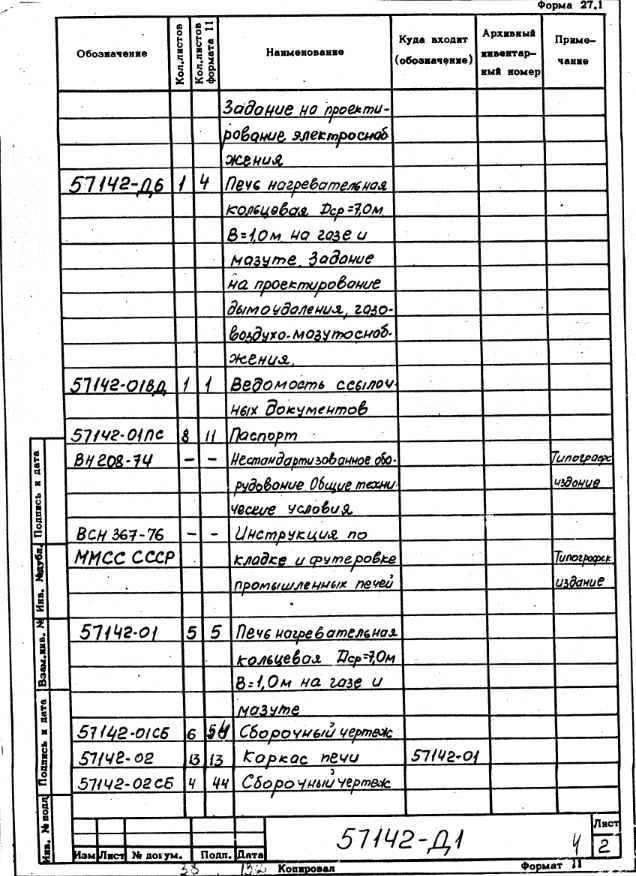 Форма 27.1
Обозначение Кол.листов Кол.листов формата 11 Наименование Куда входит (обозначение) Архивный инвентарный номер Примечание
Задание на проекти-
рование электроснаб
жения
57142-Д6 1 4 Печь нагревательная
кольцевая Dср=7,0м
В=1,0м на газе и
мазуте. Задание
на проектирование
дымоудаления, газо-
воздухо-мазутоснаб-
жения.
57142-01ВД 1 1 Ведомость ссылоч-
ных документов
57142-01ПС 8 11 Паспорт
ВН 208-74 – – Нестандартизованное обо- Типографс
рудование Общие техни- издание
ческие условия
ВСН 367-76 – – Инструкция по
ММСС СССР кладке и футеровке Типографск
промышленных печей издание
57142-01 5 5 Печь нагревательная
кольцевая Dср=7,0м
В=1,0м на газе и
мазуте
57142-01СБ 6 Сборочный чертеж
57142-02 13 13 Каркас печи 57142-01
57142-02СБ 4 44 Сборочный чертеж
Подпись и дата
Инв. №дубл.
Взам.инв. №
Подпись и дата
Инв. № подл
Изм Лист № докум. Подп. Дата
57142-Д1
Лист
2
Копировал
Формат 11